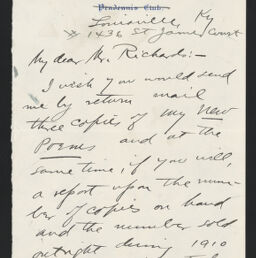 Pendennis Club,
Louisville, Ky
1436 St James Court
My dear Mr. Richards:-
I wish you would send
me by return mail
three copies of my New
Poems and at the
same time, if you will,
a report upon the num-
ber of copies on hand
and the number sold
outright during 1910